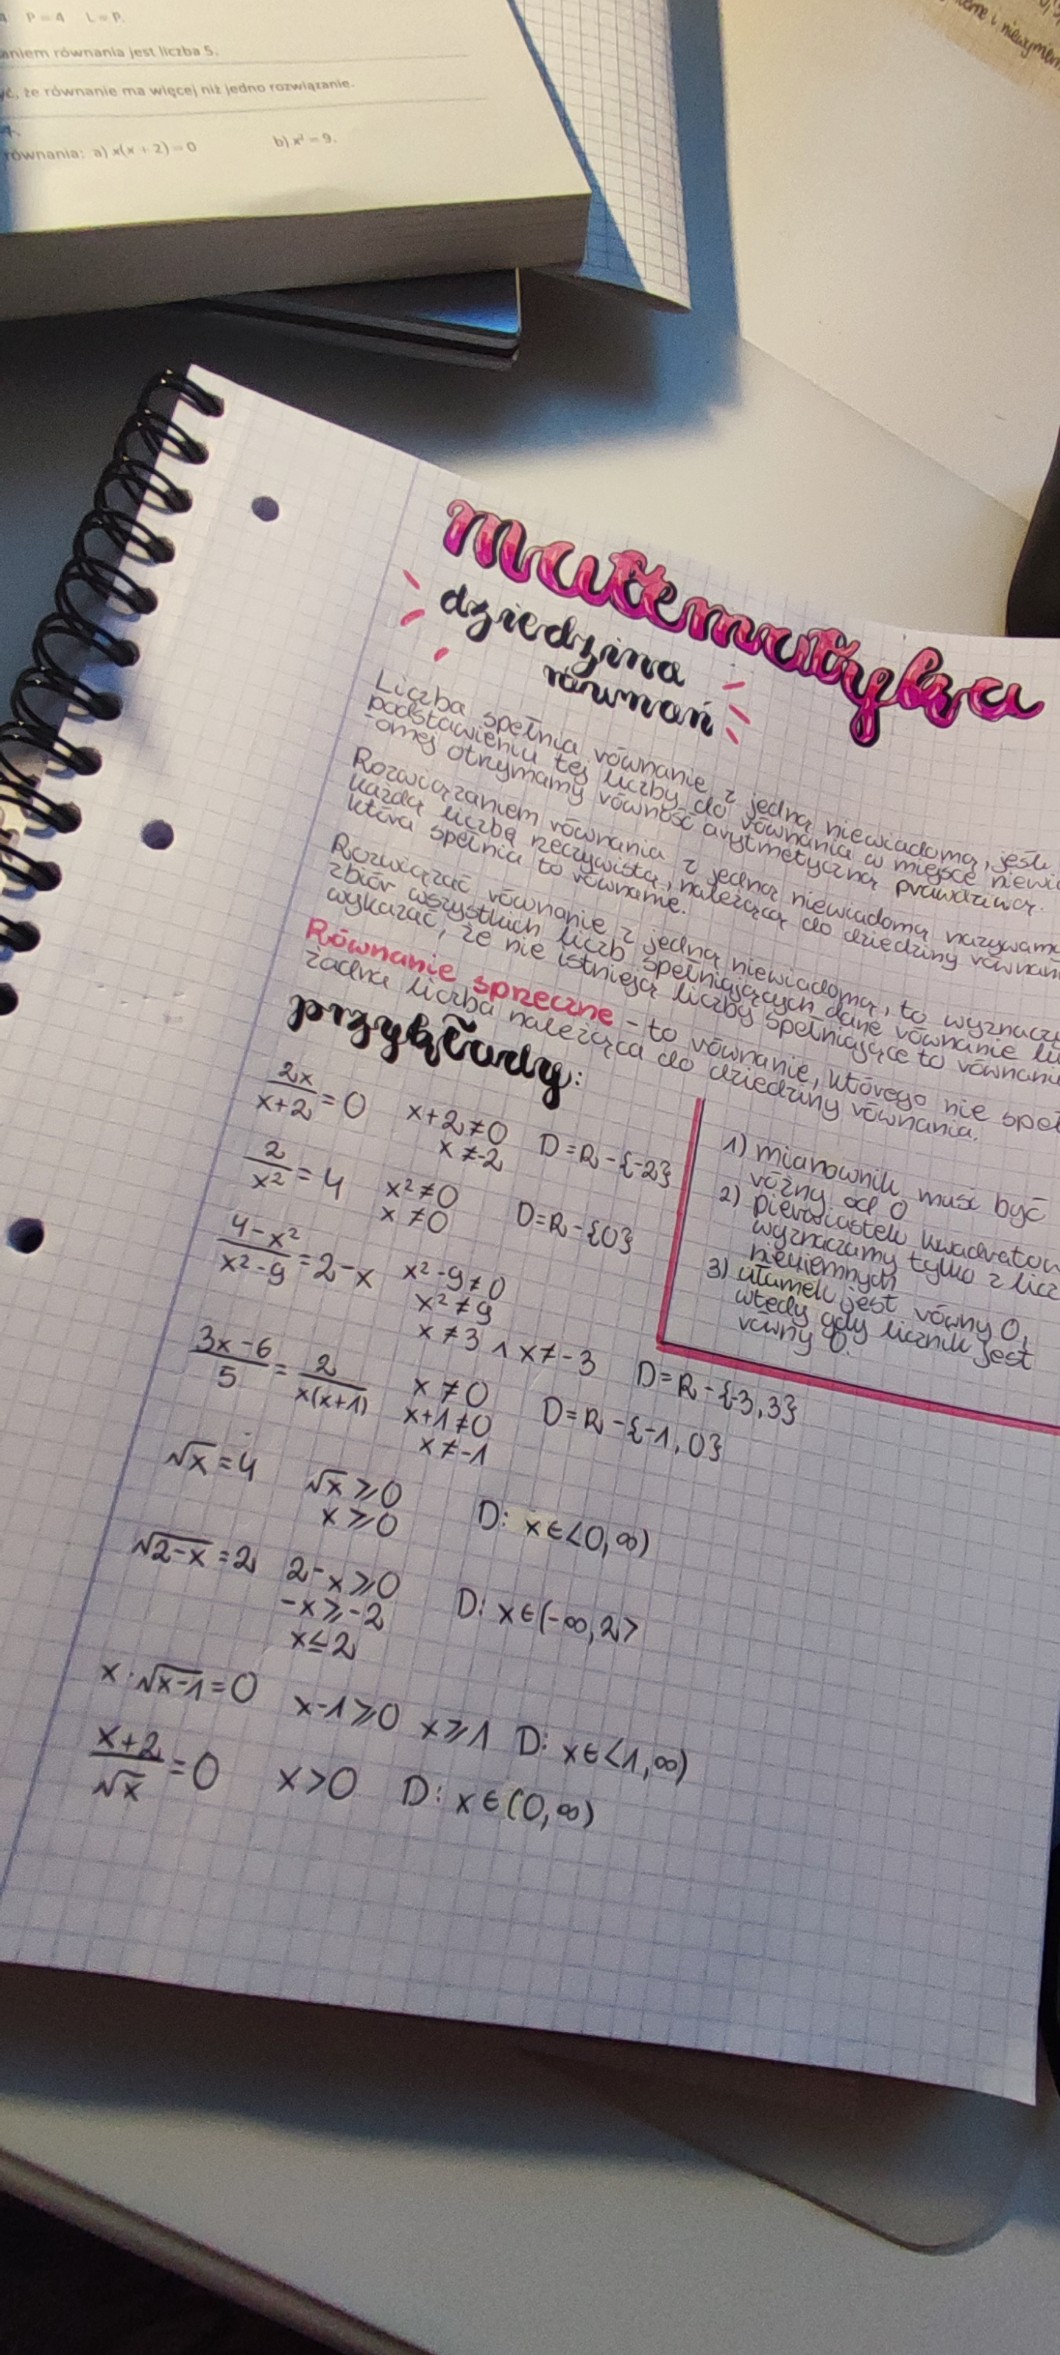 P = 4 L = P.
aniem równania jest liczba 5.
yć, że równanie ma więcej niż jedno rozwiązanie.
równania: a) x(x + 2) = 0 b) x² = 9.
matematyka
dziedzina
równań
Liczba spełnia równanie z jedną niewiadomą, jeśli
podstawieniu tej liczby do równania w miejsce niewia
-omej otrzymamy równość arytmetyczną prawdziwą.
Rozwiązaniem równania z jedną niewiadomą nazywamy
każdą liczbę rzeczywistą, należącą do dziedziny równan
która spełnia to równanie.
Rozwiązać równanie z jedną niewiadomą, to wyznaczy
zbiór wszystkich liczb spełniających dane równanie lu
wykazać, że nie istnieją liczby spełniające to równani
Równanie sprzeczne - to równanie, którego nie speł
żadna liczba należąca do dziedziny równania.
przykłady:
2x/x+2 = 0 x+2≠0 D=R-{-2}
x≠-2
2/x² = 4 x²≠0 D=R-{0}
x≠0
4-x²/x²-9 = 2-x x²-9≠0
x²≠9
x≠3 ∧ x≠-3 D=R-{-3,3}
3x-6/5 = 2/x(x+1) x≠0 D=R-{-1,0}
x+1≠0
x≠-1
√x = 4 √x ⩾ 0 D: x∈<0,∞)
x ⩾ 0
√2-x = 2 2-x⩾0 D: x∈(-∞,2>
-x⩾-2
x≤2
x·√x-1 = 0 x-1⩾0 x⩾1 D: x∈<1,∞)
x+2/√x = 0 x>0 D: x∈(0,∞)
1) mianownik musi być
różny od 0
2) pierwiastek kwadratow
wyznaczamy tylko z licz
nieujemnych
3) ułamek jest równy 0,
wtedy gdy licznik jest
równy 0.